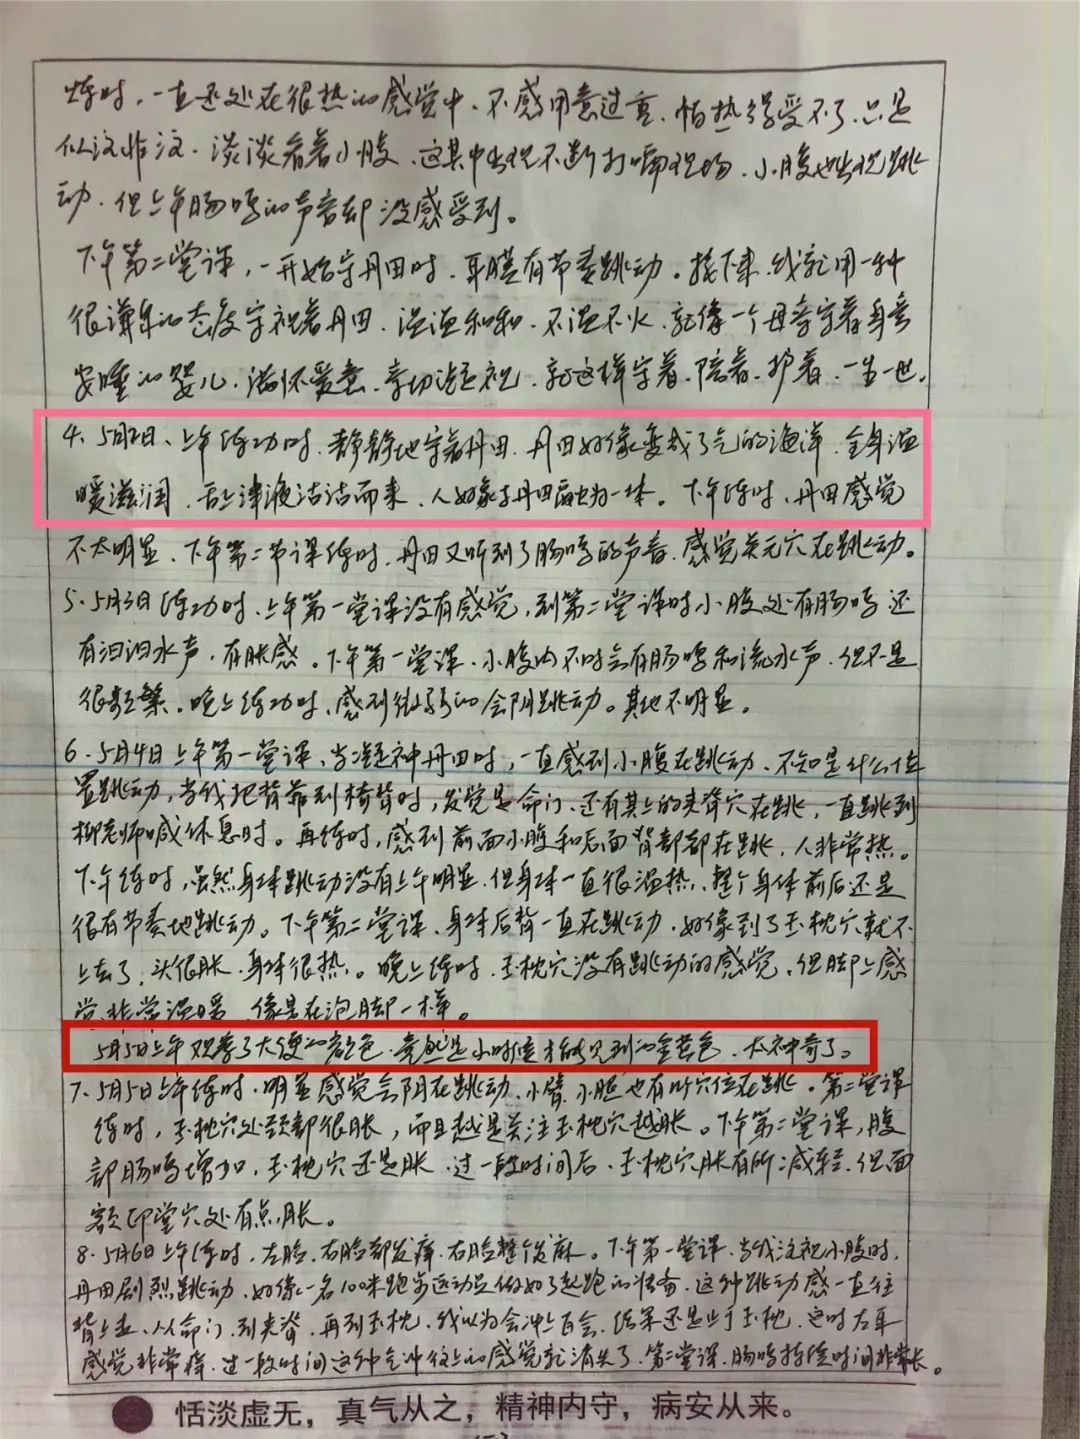 炼时，一直还处在很热的感觉中、不感用意过重、怕热得受不了、只是
似注非注、淡淡看着小腹、这其中出现不断打嗝现场、小腹也出现跳
动、但上午肠鸣的声音却没感受到。
下午第二堂课，一开始守丹田时、耳膜有节奏跳动。接下来、我就用一种
很谦卑的态度守视着丹田、温温和和、不温不火、就像一个母亲守着身旁
安睡的婴儿、满怀爱意、亲切凝视、就这样守着、陪着、护着、一生一世.
4、5月2日、上午练功时、静静地守着丹田、丹田好像变成了气的海洋、全身温
暖滋润、舌上津液沽沽而来、人好象与丹田融为一体。下午练时、丹田感觉
不太明显、下午第二节课练时、丹田又听到了肠鸣的声音、感觉关元穴在跳动。
5、5月3日练功时、上午第一堂课没有感觉，到第二堂课时小腹处有肠鸣还
有汩汩水声，有胀感。下午第一堂课、小腹内不时会有肠鸣和流水声、但不是
很频繁。晚上练功时、感到微弱的会阴跳动。其他不明显。
6、5月4日上午第一堂课、当凝神丹田时，一直感到小腹在跳动、不知是什么位
置跳动，当我把背靠到椅背时，发觉是命门、还有其上的夹脊穴在跳，一直跳到
柳老师喊休息时。再练时，感到前面小腹和后面背部都在跳，人非常热。
下午练时，虽然身体跳动没有上午明显、但身体一直很温热、整个身体前后还是
很有节奏地跳动。下午第二堂课、身体后背一直在跳动、好像到了玉枕穴就不
上去了，头很胀、身体很热。晚上练时、玉枕穴没有跳动的感觉、但脚上感
觉非常温暖、像是在泡脚一样。
5月5日上午观察了大便的颜色、竟然是小时候才能见到的金黄色、太神奇了。
7、5月5日上午练时、明显感觉会阴在跳动、小臂、小腿也有听穴位在跳。第二堂课
练时，玉枕穴处颈部很胀，而且越是关注玉枕穴越胀。下午第二堂课，腹
部肠鸣增加，玉枕穴还是胀、过一段时间后、玉枕穴胀有所减轻、但面
额印堂穴处有点胀。
8、5月6日上午练时、左脸、右脸都发痒、右脸整个发麻。下午第一堂课、当我注视小腹时、
丹田剧烈跳动、好像一名100米跑步运动员做好了起跑的准备、这种跳动感一直往
背上走、从命门、到夹脊、再到玉枕、我以为会冲上百会、结果还是止于玉枕、这时左耳
感觉非常痒、过一段时间这种气冲往上的感觉就消失了、第二堂课、肠鸣持续时间非常长。
恬淡虚无，真气从之，精神内守，病安从来。